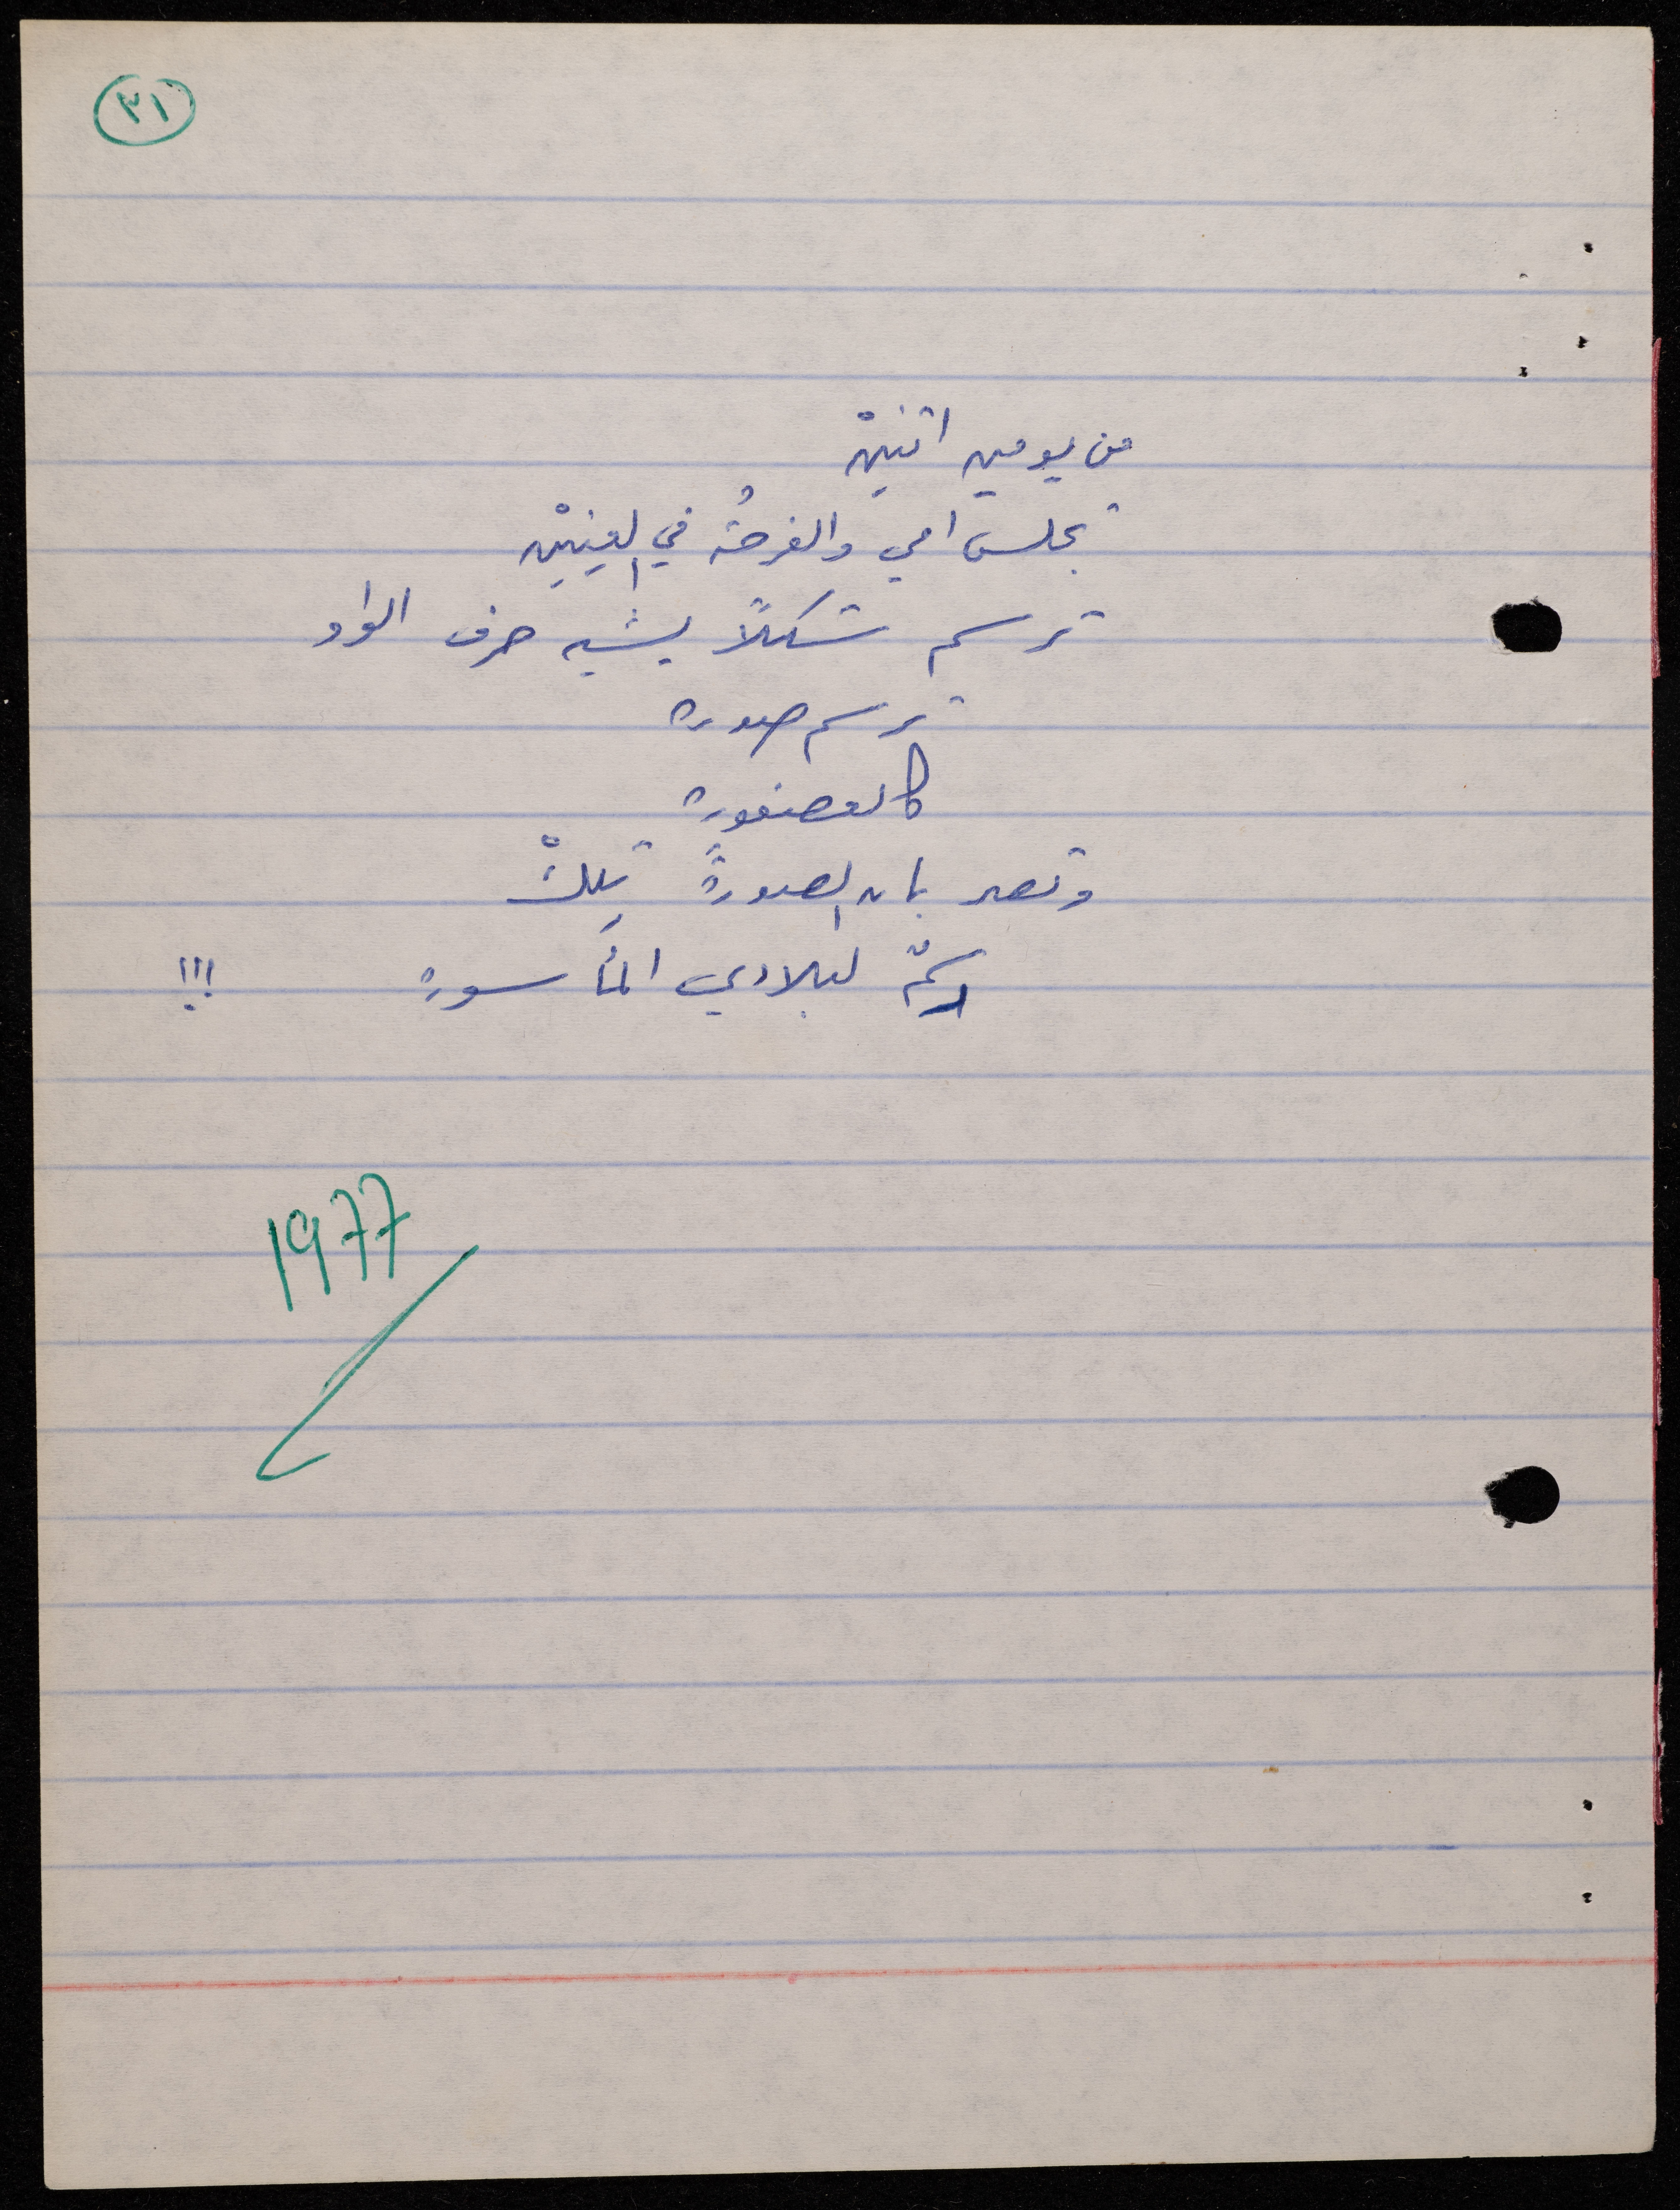 ٣١
من يومين اثنينْ
تجلس امي والفرحةُ في العينيْن
ترسم شكلاً يشبه حرف الواو
ترسم صورة
كالعصفورة
وتصر بان الصورةَ تِلكْ
رسمٌ لبلادي المأسورة !!!
1977